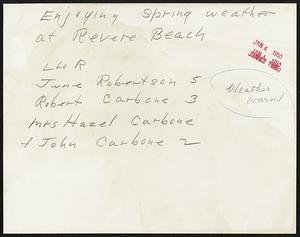 Enjoying Spring weather
at Revere Beach
L to R.
June Robertson 5
Robert Carbone 3
Mrs Hazel Carbone
+ John Carbone 2
Weather
warm
JAN 4 1950